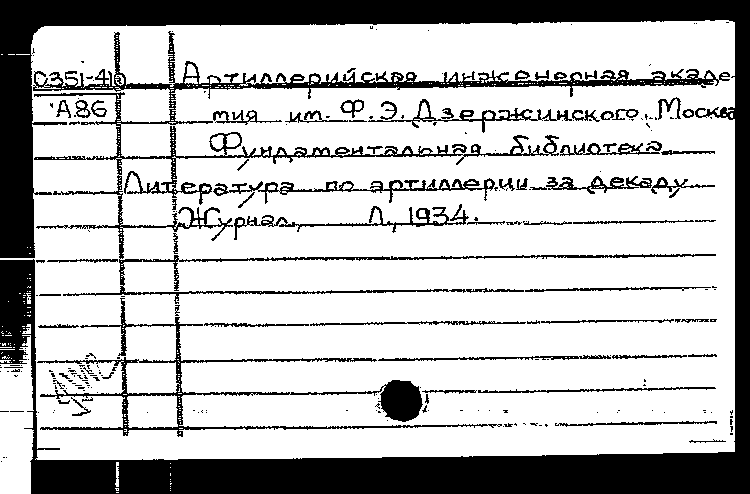 0351-410 Артиллерийская инженерная акаде-
А86 мия им. Ф.Э. Дзержинского. Москва
Фундаментальная библиотека
Литература по артиллерии за декаду
Журнал, Л., 1934.